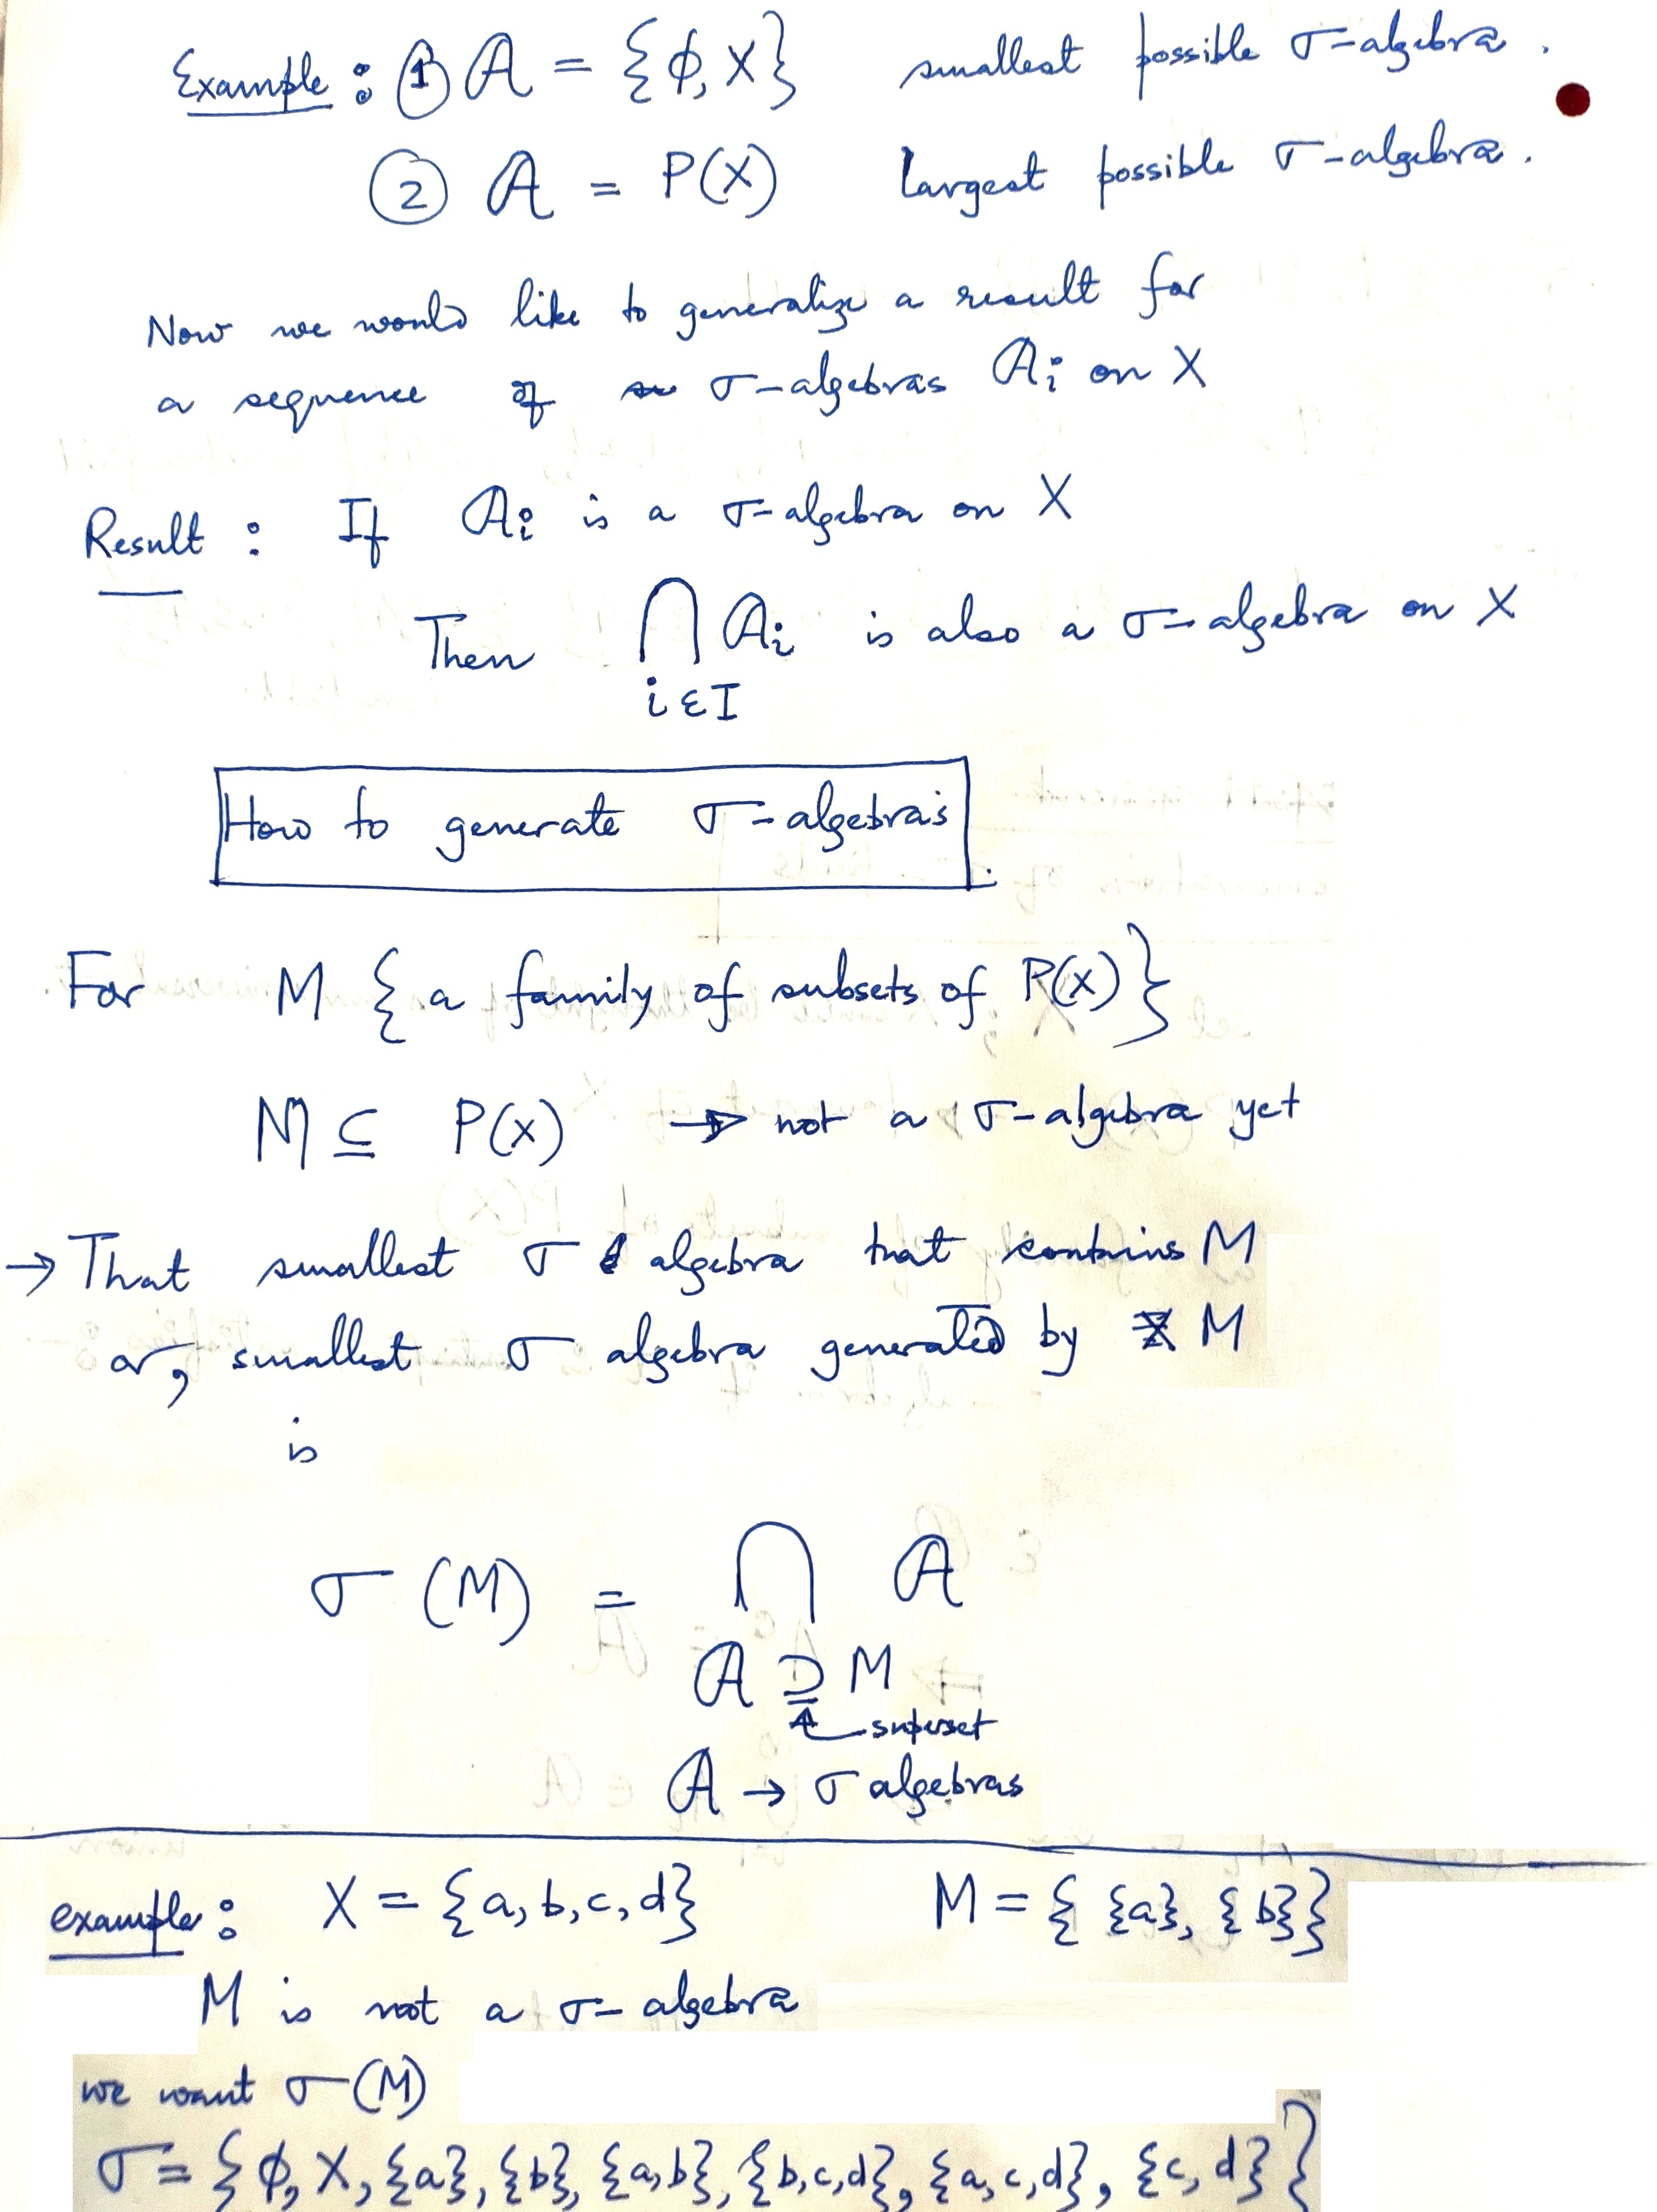 Example : ① 𝒜 = {ϕ, X} smallest possible σ-algebra.
② 𝒜 = P(X) largest possible σ-algebra.
Now we would like to generalize a result for
a sequence of σ-algebras 𝒜i on X
Result : If 𝒜i is a σ-algebra on X
Then ⋂ 𝒜i is also a σ-algebra on X
i ∈ I
How to generate σ-algebra's
For M { a family of subsets of P(X) }
M ⊆ P(X) → not a σ-algebra yet
→ That smallest σ algebra that contains M
or, smallest σ algebra generated by M
is
σ(M) = ⋂ 𝒜
𝒜 ⊇ M
superset
𝒜 → σ algebras
example : X = {a, b, c, d} M = { {a}, {b}}
M is not a σ-algebra
we want σ(M)
σ = { ϕ, X, {a}, {b}, {a,b}, {b,c,d}, {a,c,d}, {c,d} }